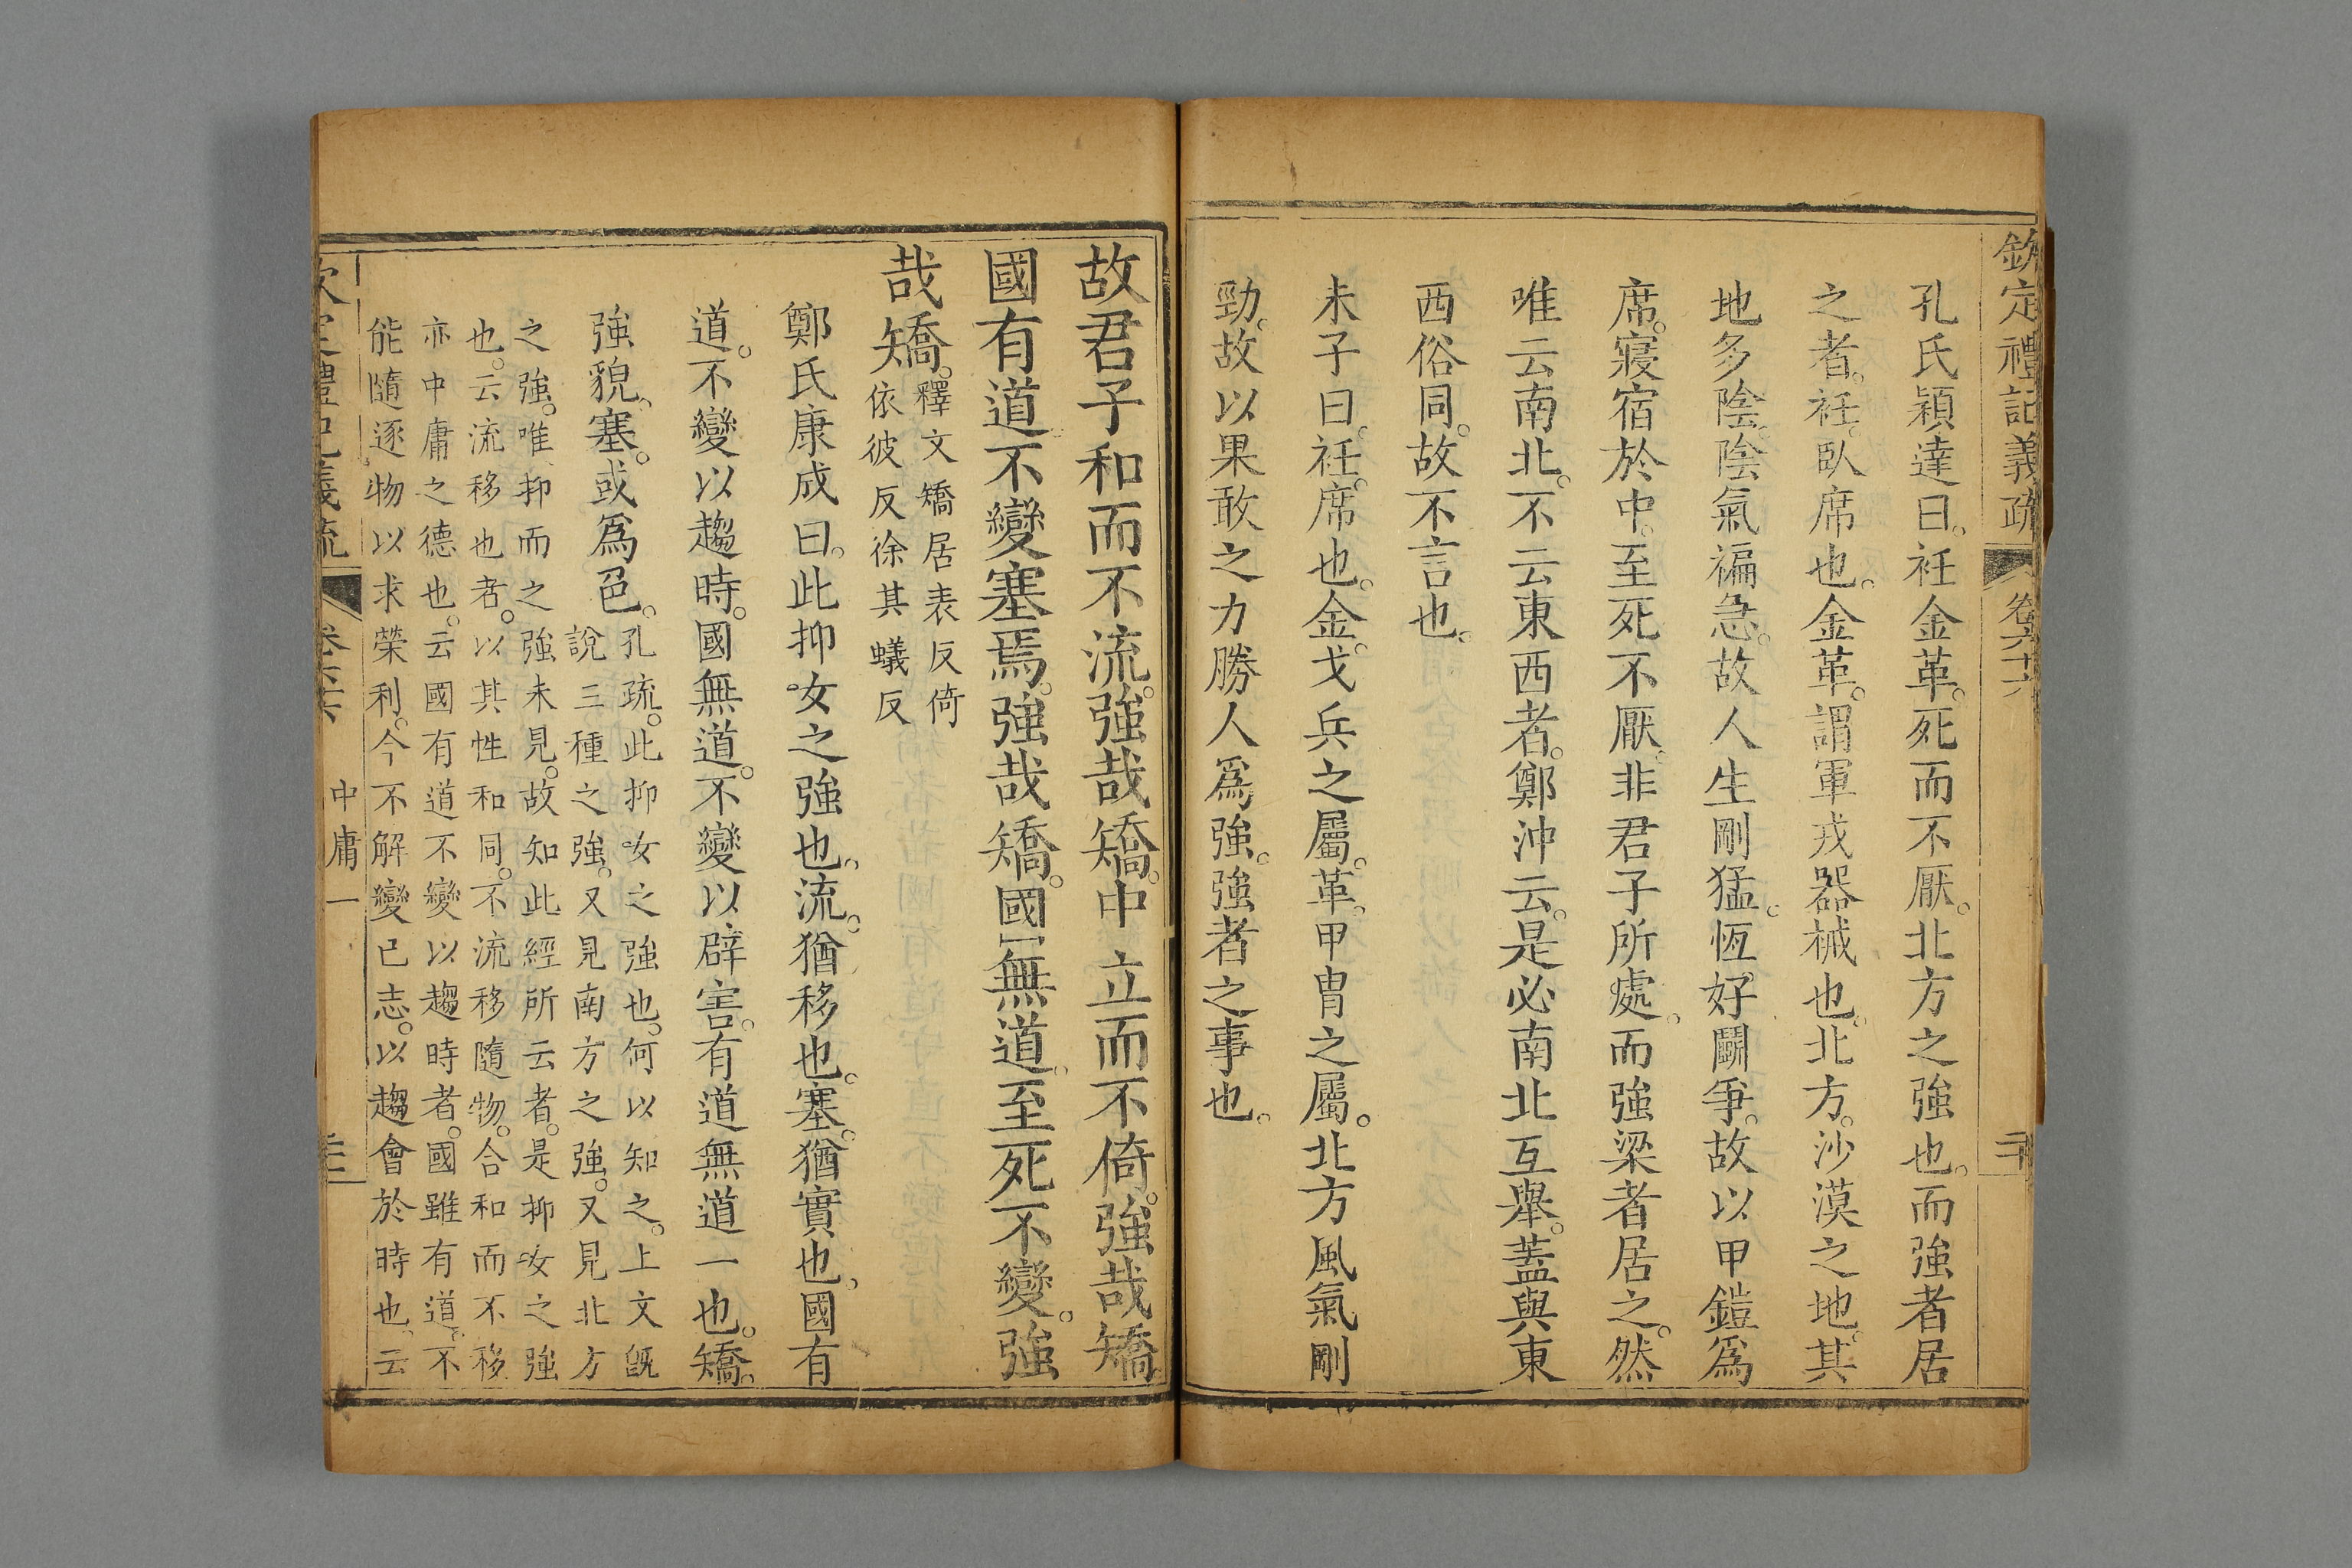 欽定禮記義疏 卷六十六 二十
孔氏穎達曰。衽金革。死而不厭。北方之強也。而強者居
之者。衽。臥席也。金革。謂軍戎器械也。北方。沙漠之地。其
地多陰。陰氣褊急。故人生剛猛。恆好鬭爭。故以甲鎧爲
席。寢宿於中。至死不厭。非君子所處。而強梁者居之。然
唯云南北。不云東西者。鄭沖云。是必南北互舉。蓋與東
西俗同。故不言也。
朱子曰。衽。席也。金。戈兵之屬。革。甲胄之屬。北方風氣剛
勁。故以果敢之力勝人爲強。強者之事也。
故君子和而不流。強哉矯。中立而不倚。強哉矯。
國有道。不變塞焉。強哉矯。國無道。至死不變。強
哉矯。釋文矯居表反倚
依彼反徐其蟻反
鄭氏康成曰。此抑女之強也。流。猶移也。塞。猶實也。國有
道。不變以趨時。國無道。不變以辟害。有道無道一也。矯。
強貌。塞。或爲色。孔疏。此抑女之強也。何以知之。上文既
說三種之強。又見南方之強。又見北方
之強。唯抑而之強未見。故知此經所云者。是抑女之強
也。云流移也者。以其性和同。不流移隨物。合和而不移
亦中庸之德也。云國有道不變以趨時者。國雖有道。不
能隨逐物以求榮利。今不解變已志。以趨會於時也。云
欽定禮記義疏 卷六十六 中庸一